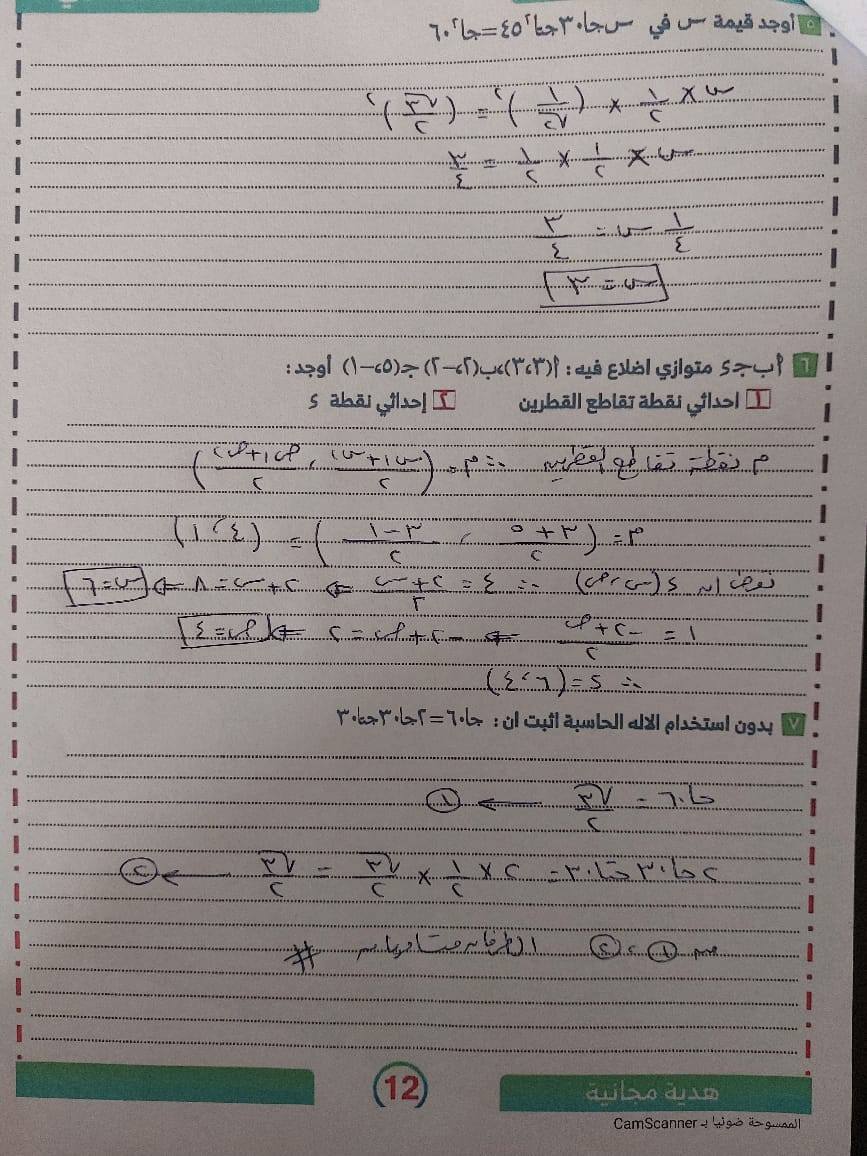 ٥ أوجد قيمة س في س جا٣٠ جتا²٤٥ = جا²٦٠
س × ١/٢ × (١/√٢)² = (√٣/٢)²
س × ١/٢ × ١/٢ = ٣/٤
١/٤ س = ٣/٤
س = ٣
٦ أ ب جـ د متوازي اضلاع فيه : أ(٣،٣)،ب(٢،-٢) جـ(٥،-١) أوجد :
١ احداثي نقطة تقاطع القطرين ٢ إحداثي نقطة د
م نقطة تقاطع القطرين ∴ م = (س١+س٢/٢ , ص١+ص٢/٢)
م = (٣+٥/٢ , ٣-١/٢) = (٤،١)
نفرض ان د (س،ص) ∴ ٤ = ٢+س/٢ ⇐ ٢+س=٨ ⇐ س=٦
١ = -٢+ص/٢ ⇐ -٢+ص=٢ ⇐ ص=٤
∴ د = (٦،٤)
٧ بدون استخدام الاله الحاسبة اثبت ان : جا٦٠ = ٢جا٣٠ جتا٣٠
جا٦٠ = √٣/٢ ← ١
٢ جا٣٠ جتا٣٠ = ٢ × ١/٢ × √٣/٢ = √٣/٢ ← ٢
من ١ ، ٢ الطرفان متساويان #
12
هدية مجانية
الممسوحة ضوئيا بـ CamScanner